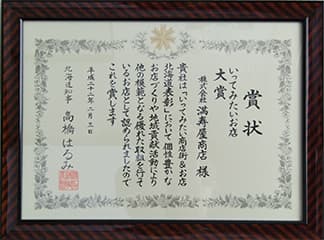 賞状
いってみたいお店
大賞
株式会社 満寿屋商店 様
貴社は「いってみたい商店街&お店
北海道表彰」において個性豊かな
お店づくりや地域貢献活動により
他の模範となる優れた取組を行って
いるお店として認められましたので
これを賞します
平成二十二年二月三日
北海道知事 高橋はるみ